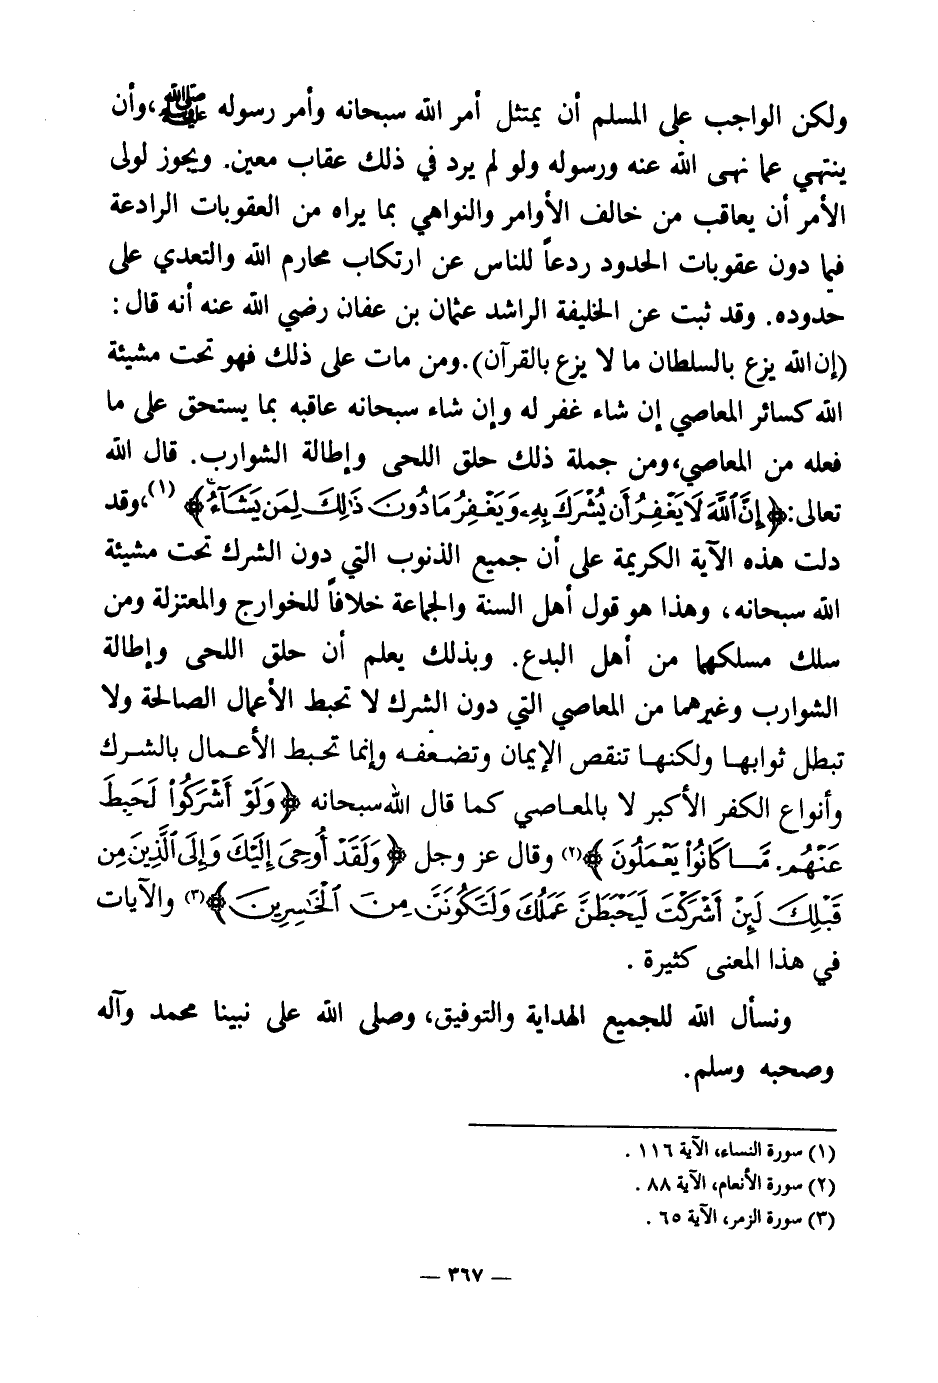 ولكن الواجب على المسلم أن يمتثل أمر الله سبحانه وأمر رسوله ﷺ، وأن
ينتهي عما نهى الله عنه ورسوله ولو لم يرد في ذلك عقاب معين. ويجوز لولى
الأمر أن يعاقب من خالف الأوامر والنواهي بما يراه من العقوبات الرادعة
فيما دون عقوبات الحدود ردعاً للناس عن ارتكاب محارم الله والتعدي على
حدوده. وقد ثبت عن الخليفة الراشد عثمان بن عفان رضي الله عنه أنه قال:
(إن الله يزع بالسلطان ما لا يزع بالقرآن). ومن مات على ذلك فهو تحت مشيئة
الله كسائر المعاصي إن شاء غفر له وإن شاء سبحانه عاقبه بما يستحق على ما
فعله من المعاصي، ومن جملة ذلك حلق اللحى وإطالة الشوارب. قال الله
تعالى: ﴿إِنَّ ٱللَّهَ لَا يَغْفِرُ أَن يُشْرَكَ بِهِۦ وَيَغْفِرُ مَا دُونَ ذَٰلِكَ لِمَن يَشَآءُ﴾ (١)، وقد
دلت هذه الآية الكريمة على أن جميع الذنوب التي دون الشرك تحت مشيئة
الله سبحانه، وهذا هو قول أهل السنة والجماعة خلافاً للخوارج والمعتزلة ومن
سلك مسلكهما من أهل البدع. وبذلك يعلم أن حلق اللحى وإطالة
الشوارب وغيرهما من المعاصي التي دون الشرك لا تحبط الأعمال الصالحة ولا
تبطل ثوابها ولكنها تنقص الإيمان وتضعفه وإنما تحبط الأعمال بالشرك
وأنواع الكفر الأكبر لا بالمعاصي كما قال الله سبحانه ﴿وَلَوْ أَشْرَكُوا۟ لَحَبِطَ
عَنْهُم مَّا كَانُوا۟ يَعْمَلُونَ﴾(٢) وقال عز وجل ﴿وَلَقَدْ أُوحِىَ إِلَيْكَ وَإِلَى ٱلَّذِينَ مِن
قَبْلِكَ لَئِنْ أَشْرَكْتَ لَيَحْبَطَنَّ عَمَلُكَ وَلَتَكُونَنَّ مِنَ ٱلْخَٰسِرِينَ﴾(٣) والآيات
في هذا المعنى كثيرة.
ونسأل الله للجميع الهداية والتوفيق، وصلى الله على نبينا محمد وآله
وصحبه وسلم.
(١) سورة النساء، الآية ١١٦.
(٢) سورة الأنعام، الآية ٨٨.
(٣) سورة الزمر، الآية ٦٥.
— ٣٦٧ —